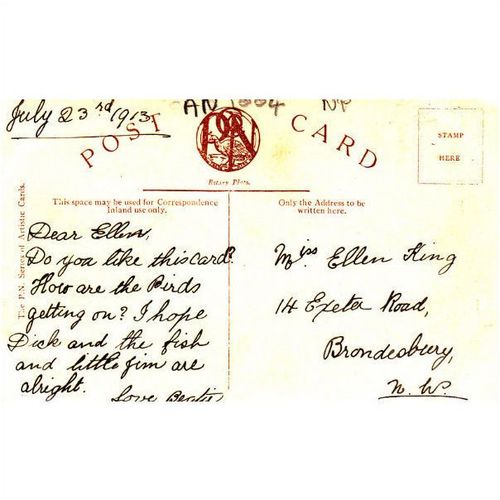 July 23rd 1913.
AN 1664 NP
POST CARD
PN
STAMP
HERE
Rotary Photo.
The P.N. Series of Artistic Cards.
This space may be used for Correspondence
Inland use only.
Only the Address to be
written here.
Dear Ellen,
Do you like this card?
How are the Birds
getting on? I hope
Dick and the fish
and little Jim are
alright.
Love Beatie
Miss Ellen King
14 Exeter Road,
Brondesbury,
N. W.